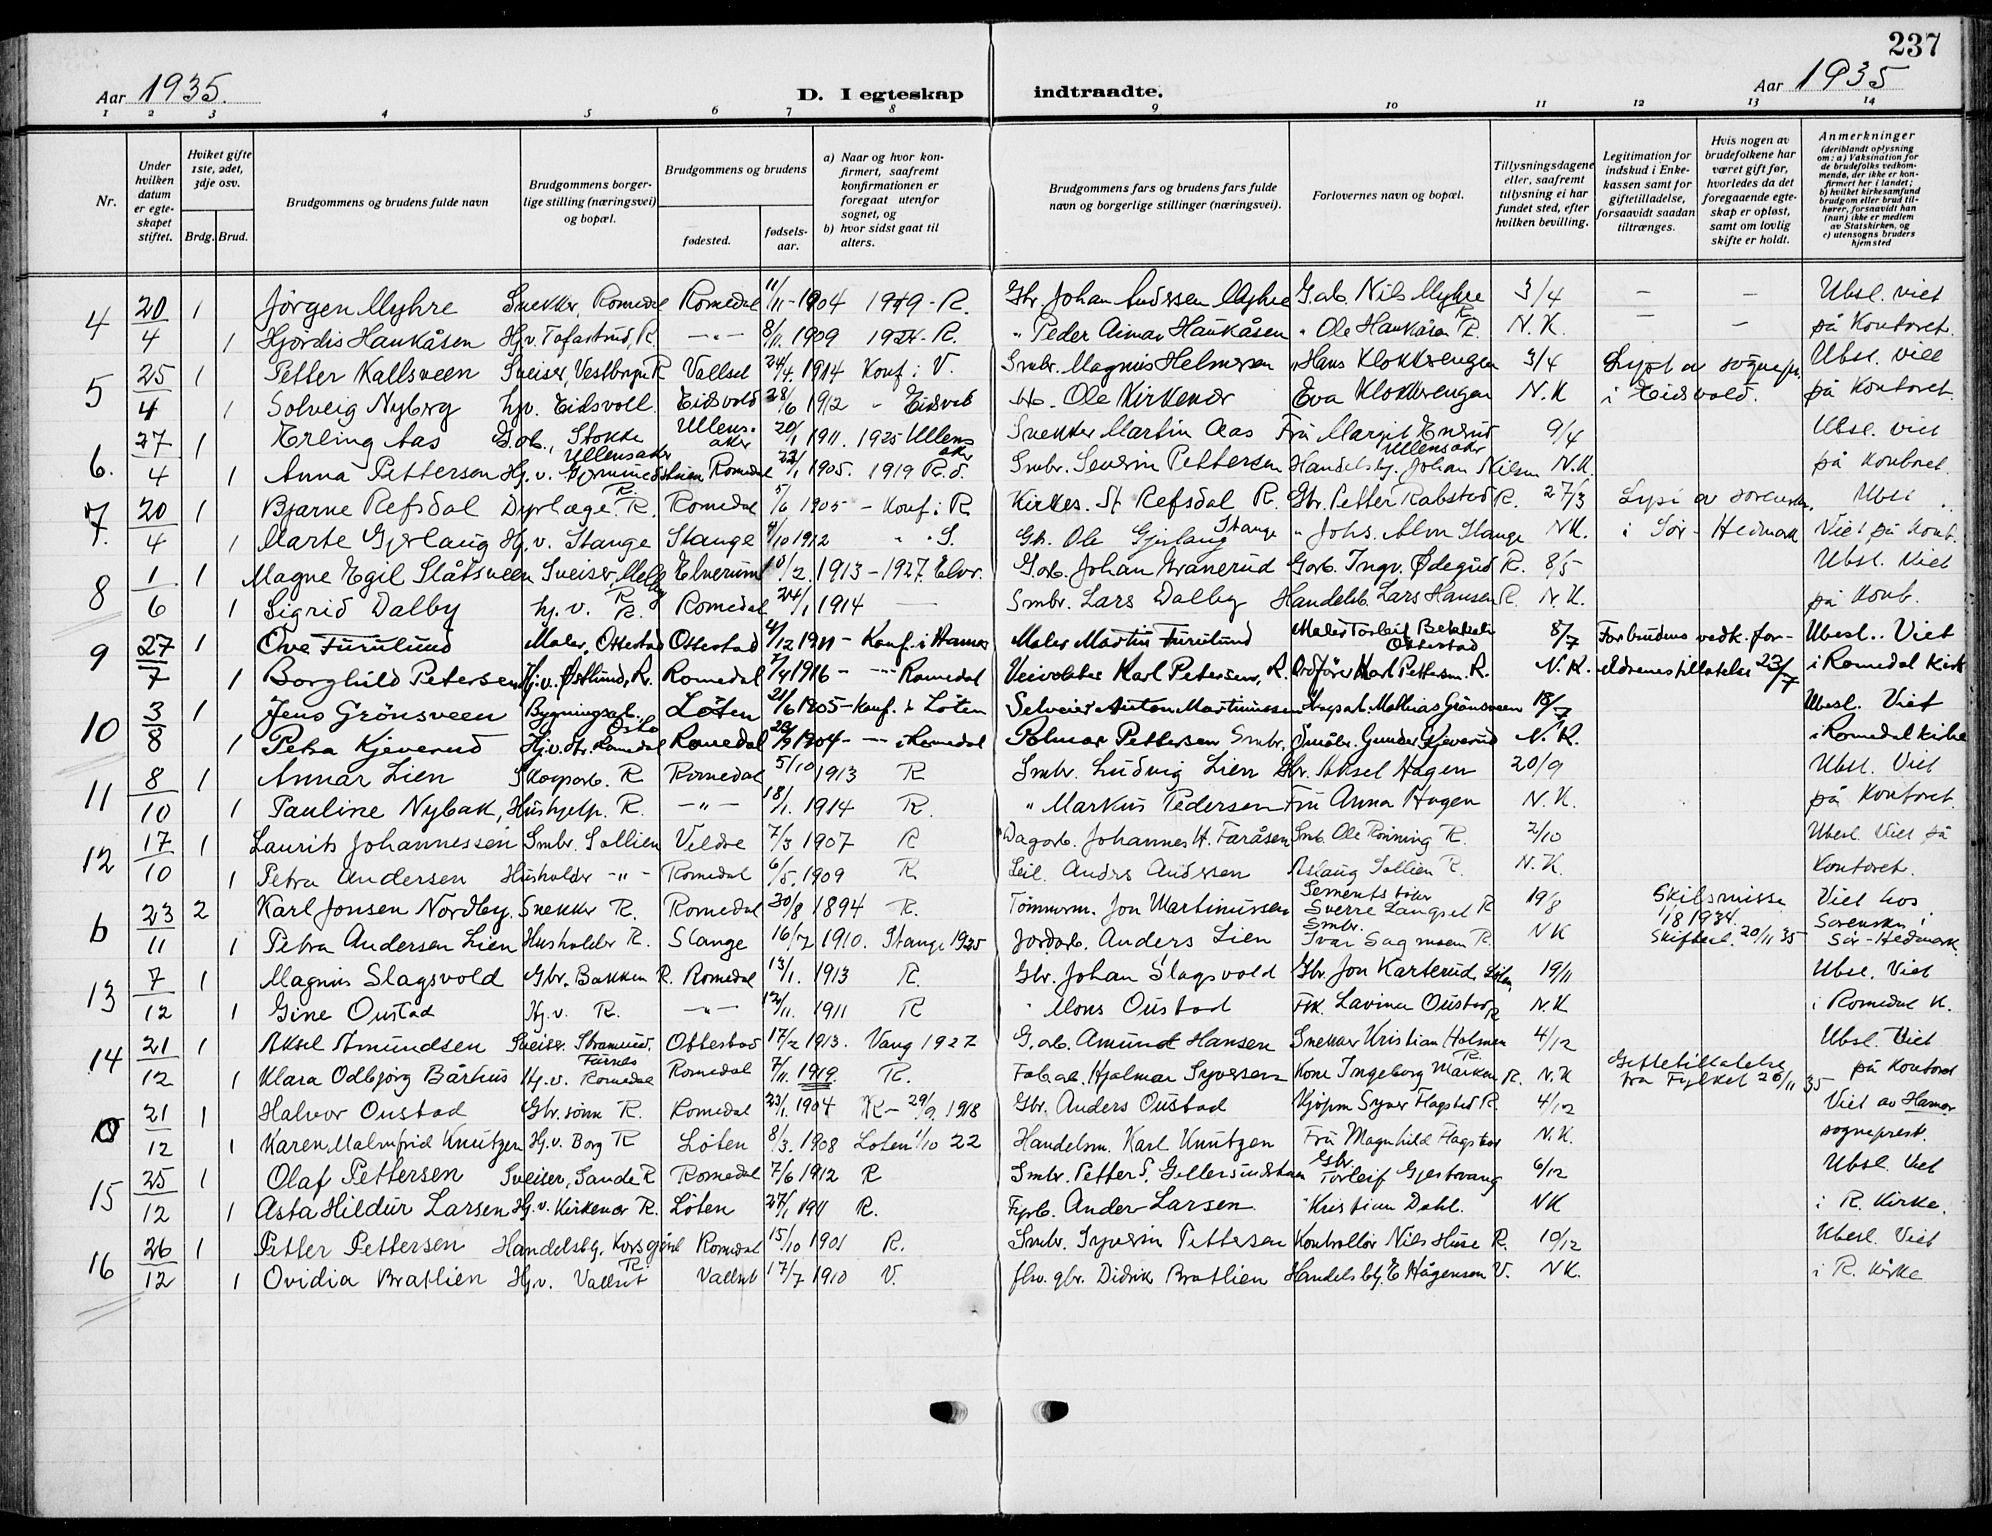 237
Aar 1935. D. I egteskap indtraadte. Aar 1935
1 2 3 4 5 6 7 8 9 10 11 12 13 14
Nr.
Under hvilken datum er egteskapet stiftet.
Hviket gifte 1ste, 2det, 3dje osv.
Brdg. Brud.
Brudgommens og brudens fulde navn
Brudgommens borgerlige stilling (næringsvei) og bopæl.
Brudgommens og brudens
fødested.
fødselsaar.
a) Naar og hvor konfirmert, saafremt konfirmationen er foregaat utenfor sognet, og
b) hvor sidst gaat til alters.
Brudgommens fars og brudens fars fulde navn og borgerlige stillinger (næringsvei).
Forlovernes navn og bopæl.
Tillysningsdagene eller, saafremt tillysning ei har fundet sted, efter hvilken bevilling.
Legitimation for indskud i Enkekassen samt for giftetilladelse, forsaavidt saadan tiltrænges.
Hvis nogen av brudefolkene har været gift før, hvorledes da det foregaaende egteskap er opløst, samt om lovlig skifte er holdt.
Anmerkninger (deriblandt oplysning om: a) Vaksination for de brudefolks vedkommende, der ikke er konfirmert her i landet; b) hvilket kirkesamfund brudgom eller brud tilhører, forsaavidt han (hun) ikke er medlem av Statskirken, og c) utensogns bruders hjemsted
4 20/4 1 Jørgen Myhre Snekker, Romedal Romedal 11/11-1904 1919 - R. Gbr. Johan Anderssen Myhre G.arb. Nils Myhre R. 3/4 - - Ubsl. viet
1 Hjørdis Haukåsen Hj.v. Tofastrud, R. -"- 8/11. 1909 1924. R. " Peder Aimar Haukåsen " Ole Haukåsen R. N.K. - - på Kontoret.
5 25/4 1 Petter Kallsveen Sveiser, R Vallset 24/4. 1914 Konf. i V. Smbr. Magnus Helmersen Hans Klokkerengen 3/4 Lyst av sognepr. Ubsl. viet
1 Solveig Nyberg hjv. Eidsvoll. Eidsvold 28/6 1912 - Eidsvol Ole Kirkener Eva Klokkerengen N.K i Eidsvold. på Kontoret.
6. 27/4 1 Erling Aas G.arb., Stokke Ullensaker Ullensaker 20/1 1911. 1925 Ullensaker Snekker Martin Aas Fru Margit Enerud Ullensaker 9/4 Ubsl. viet
1 Anna Pettersen Hj.v. R. Romedal 22/1 1905. 1919 R. S. Smbr. Severin Pettersen Handelsbj. Johan Nilsen N.K. på Kontoret.
7. 20/4 1 Bjarne Refsdal Dyrlæge. R. Romedal 5/6 1905 - Konf. i R Kirkes. St Refsdal R. Gbr. Petter Rabstad R. 27/3 Lyst av sorenskr. Ubsl.
1 Marte Gjerlaug Hj.v. Stange Stange 4/10 1912 " " S. Gb. Ole Gjerlaug Stange " Johs. Alm Stange NK. i Sør-Hedmark Viet på Kont.
8 1/6 1 Magne Egil Slåtsveen Sveiser, R Elverum 10/2. 1913 - 1927. Elvr. G.arb. Johan Granerud Garb. Ingv. Ødegård R. 8/5 Ubsl. Viet
1 Sigrid Dalby hj.v. R. Romedal 24/1 1914 - Smbr. Lars Dalby Handelsb. Lars Hansen R. N.K. på Kont.
9 27/7 1 Ove Furulund Maler, Ottestad Ottestad 4/12 1911 - Konf. i Hamar Maler Martin Furulund Maler Torleif Bekken Ottestad 8/7 Forbudens vedk. for- Ubesl.. Viet
1 Borghild Petersen Hj.v. Østlund, R. Romedal 7/4 1916 - -"- Romedal Veivokter Karl Petersen, R. Ordfører Karl Pettersen. R. N.K. eldrenes tillatelse 23/7 i Romedal Kirk
10 3/8 1 Jens Grönsveen Bygningsarb. Oslo Löten 21/6 1905 - Konf. i Löten Selveier Anton Martinussen Skogsarb. Mathias Grönsveen 18/7 Ubesl. Viet
1 Petra Kjeverud Hj.v. Romedal Romedal 20/9 1904 - - i Romedal Polmar Pettersen Smbr. Småbr. Gunder Kjeverud N.K. i Romedal kirke
11 8/10 1 Annar Lien Skogsarb. R Romedal 5/10 1913 R Smbr. Ludvig Lien Gbr. Aksel Hagen 20/9 Ubsl. Viet
1 Pauline Nybak, Hushjelp. R. -"- 18/1. 1914 R. " Markus Pedersen Fru Anna Hagen N.K. på Kontoret.
12 17/10 1 Laurits Johannessen Smbr. Sollien Veldre 7/3 1907 R Dagarb. Johannes H. Faråsen Smb. Ole Rønning R. 2/10 Ubesl. Viet på
1 Petra Andersen Husholder -"- Romedal 6/5. 1909 R. Seil. Anders Andersen Aslaug Sollien R. N.K. Kontoret.
b 23/11 2 Karl Jonsen Nordby. Snekker R. Romedal 30/8 1894 R. Tømmerm. Jon Martinussen Sementstøber Sverre Langset R 19/8 Skilsmisse 1/8 1934. Viet hos
1 Petra Andersen Lien Husholder R. Stange 16/7 1910. Stange 1925 Jordarb. Anders Lien Smbr. Ivar Sagmoen R. NK Skifteerl. 20/11 35 Sorenskr. i Sør-Hedmark
13 7/12 1 Magnus Slagsvold Gbr. Bakken R. Romedal 13/1. 1913 R. Gbr. Johan Slagsvold Gbr. Jon Karterud Löten 19/11 Ubsl. Viet
1 Gine Oustad Hj.v. R. -"- 12/11. 1911 R " Mons Oustad Frk. Lavina Oustad R N.K i Romedal K.
14 21/12 1 Aksel Amundsen Sveiser. Furnes Ottestad 17/2 1913. Vang 1927 G.arb. Amund Hansen Snekker Kristian Holmen R. 4/12 Giftetillatelse Ubsl. Viet
1 Klara Odbjørg Bårhus Hj.v. Romedal Romedal 7/11. 1919. R. Fab.arb. Hjalmar Syversen Kone Ingeborg R. N.K fra Fylket 26/11 35 på Kontoret
21/12 1 Halvor Oustad Gbr.sønn R. Romedal 23/1. 1904 R - 29/9. 1918 Gbr. Anders Oustad Kjøpm Syver Flagstad R. 4/12 Viet av Hamar
1 Karen Malmfrid Knutzen Hj.v. Borg R Løten 8/3. 1908 Løten 1/10 22 Handelsm. Karl Knutzen Fru Magnhild Flagstad N.K. sogneprest.
15 25/12 1 Olaf Pettersen Sveiser, Sande R Romedal 7/6 1912 R Smbr. Petter S. Gbr. Torleif Gjestvang 6/12 Ubsl. Viet
1 Asta Hildur Larsen Hj.v. Kirkener R. Löten 27/1 1911 R. Fyrb. Ander Larsen. " Kristian Dahl. NK i R. Kirke.
16 26/12 1 Petter Pettersen Handelsbj. R. Romedal 15/10 1901 R. Smbr. Syverin Pettersen Kontrollör Nils Huse R. 10/12 Ubesl. Viet
1 Ovidia Bratlien Hj.v. Vallset Vallset 17/7 1910 V. gbr. Didrik Bratlien Handelsbj. E Hågensen V. NK. i R. Kirke